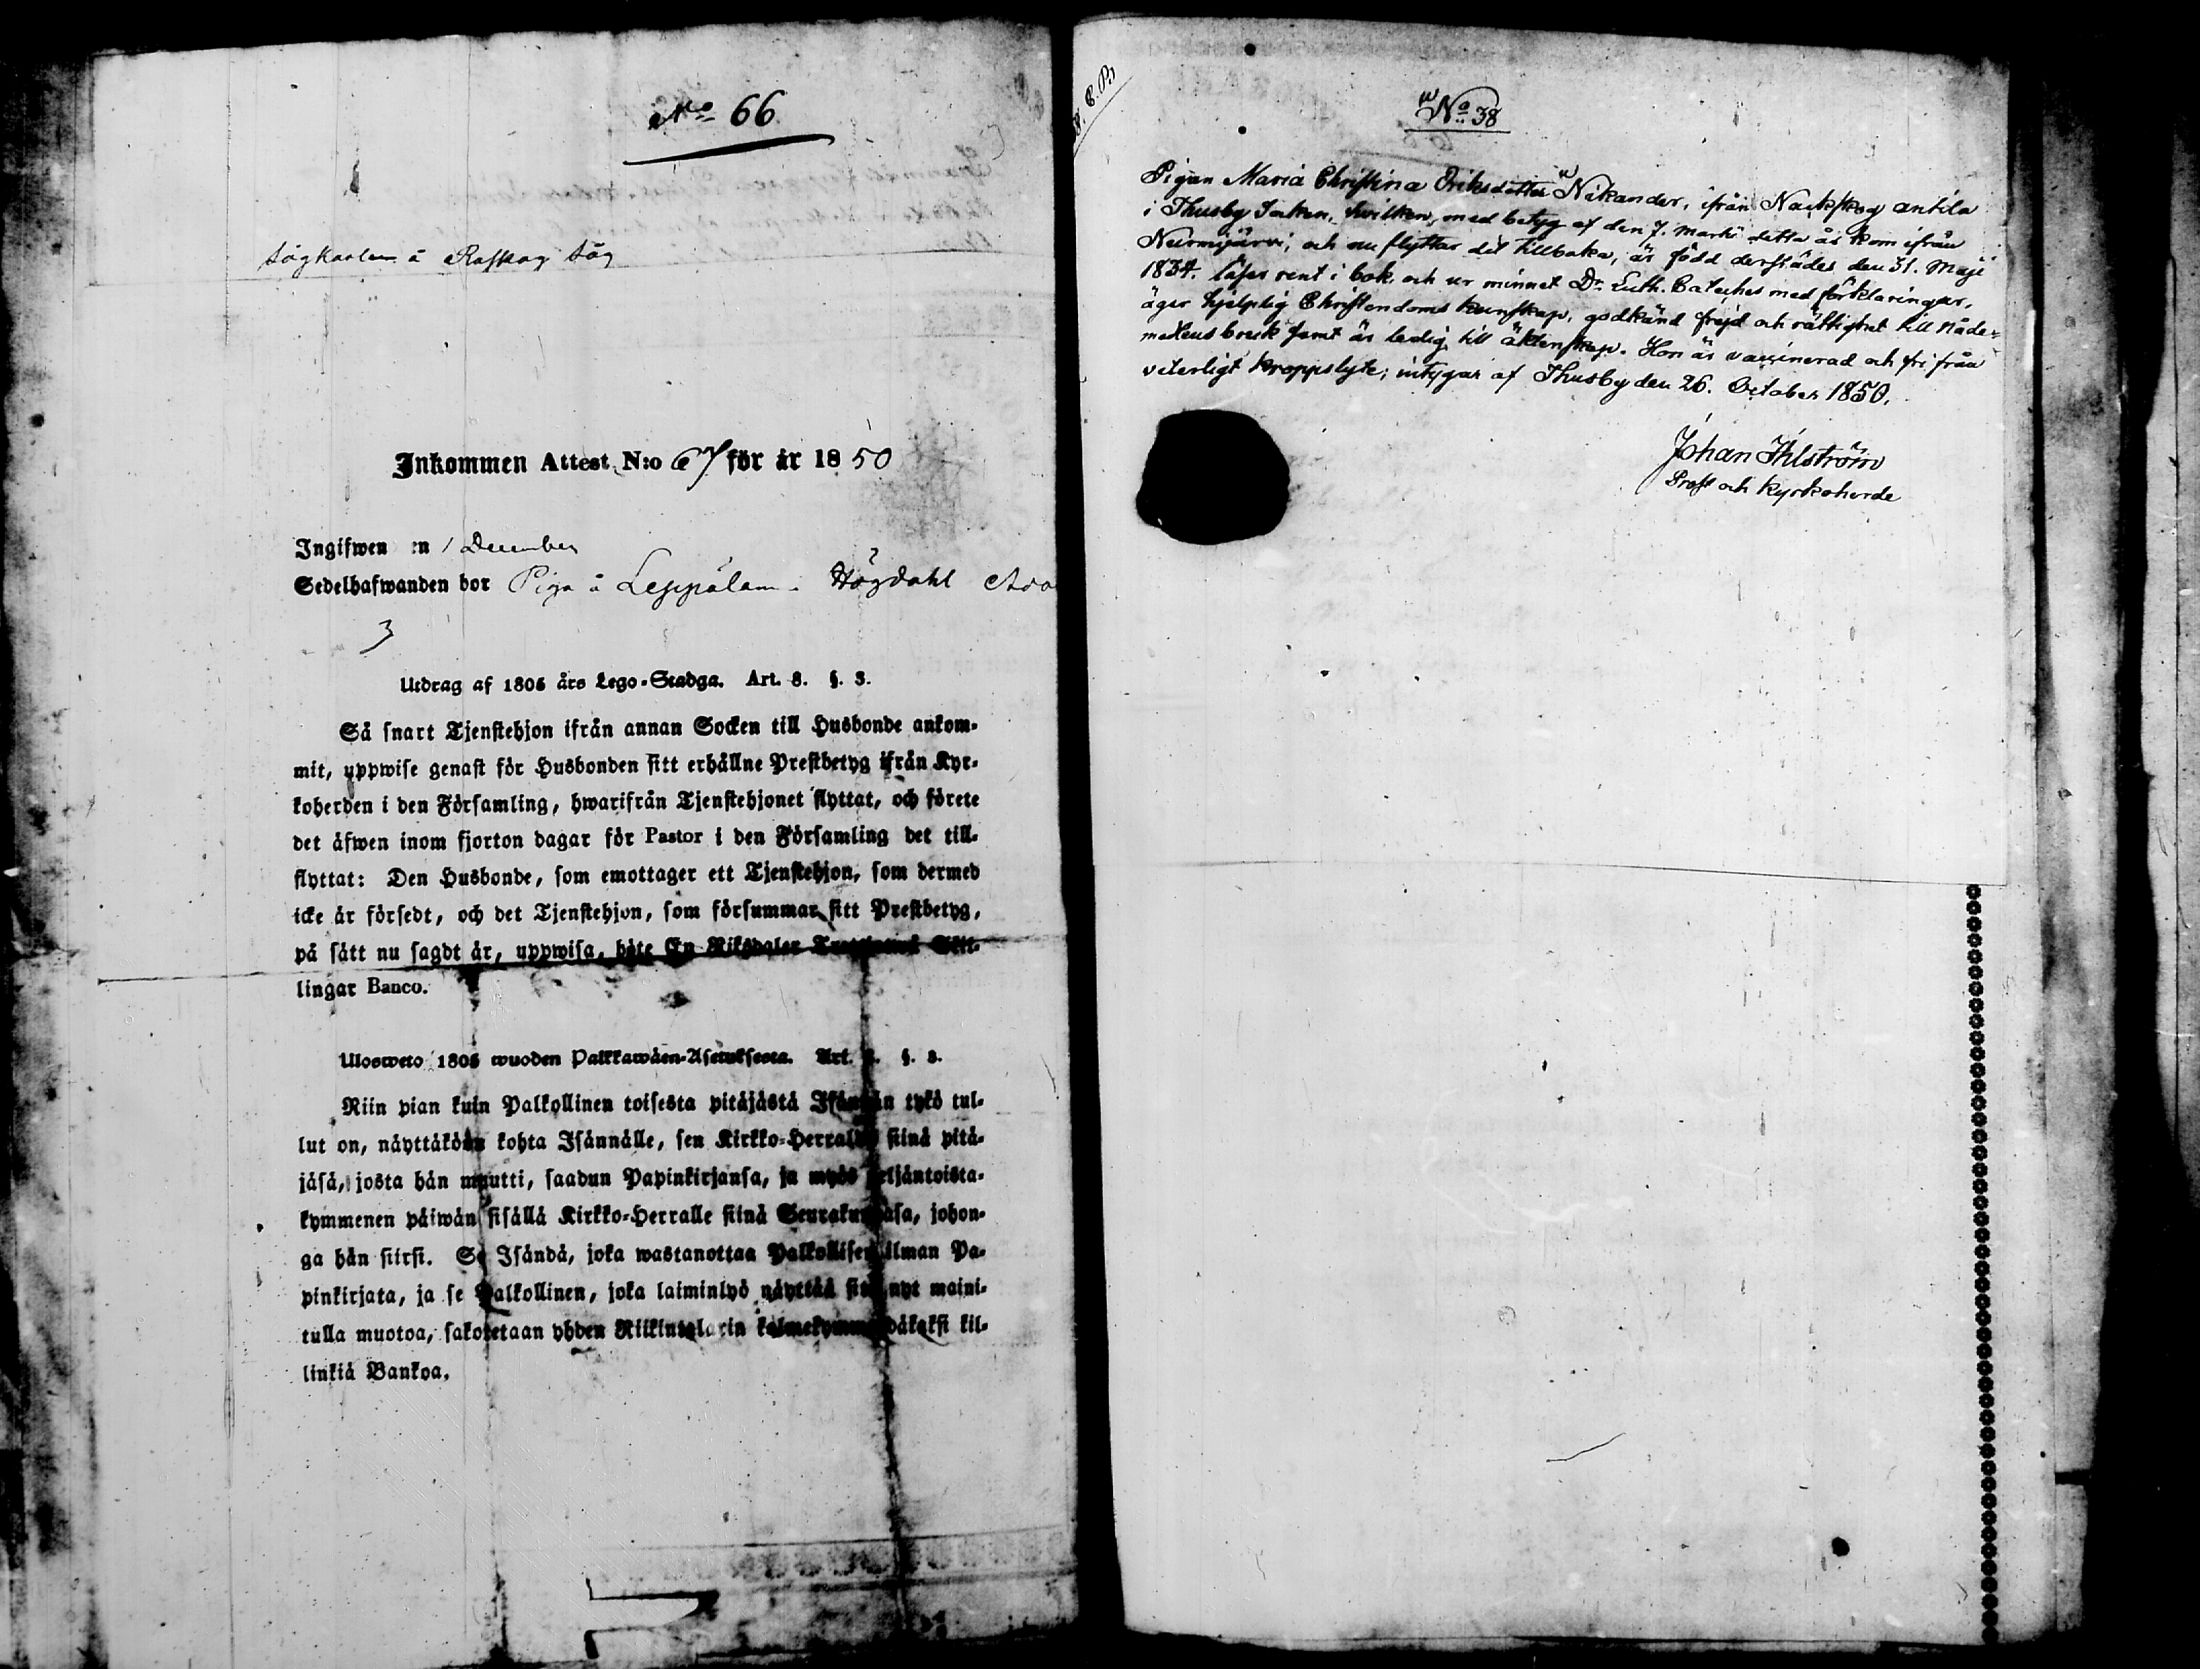 No 66
Sågkarlen å Raskog Såg
Inkommen Attest N:o 67 för år 1850
Ingifwen en 1 December
Sedelhafwanden bor Piga å Leppälam. Högdahl
3
Utdrag af 1805 års Lego-Stadga. Art. 8. §. 3.
Så snart Tjenstehjon ifrån annan Socken till Husbonde ankom-
mit, uppwise genast för Husbonden sitt erhållne Prestbetyg ifrån Kyr-
koherden i den Församling, hwarifrån Tjenstehjonet flyttat, och förete
det äfwen inom fjorton dagar för Pastor i den Församling det till-
flyttat: Den Husbonde, som emottager ett Tjenstehjon, som dermed
icke är försedt, och det Tjenstehjon, som försummar sitt Prestbetyg,
på sätt nu sagdt är, uppwisa, böte En Riksdaler Skil-
lingar Banco.
Ulosweto 1805 wuoden Palkkawäen-Asetuksesta. Art. §. 3.
Niin pian kuin Palkollinen toisesta pitäjästä Isännän tykö tul-
lut on, näyttäköön kohta Isännälle, sen Kirkko-Herralda siinä pitä-
jäsä, josta hän muutti, saadun Papinkirjansa, ja myös neljäntoista-
kymmenen päiwän sisällä Kirkko-Herralle siinä Seurakunnasa, johon-
ga hän siirsi. Se Isändä, joka wastanottaa Palkollisen ilman Pa-
pinkirjata, ja se Palkollinen, joka laiminlyö näyttää sitä nyt maini-
tulla muotoa, sakotetaan yhden Riikintalarin kolmekymmendäkaksi kil-
linkiä Bankoa.
No 38
Pigan Maria Christina Eriksdotter Nikander, ifrån Nackskog Antila
i Thusby Socken, hwilken, med betyg af den 7. Martii detta år kom ifrån
Nurmijärvi, och nu flyttar dit tillbaka, är född derstädes den 31. Maji
1834. läser rent i bok och ur minnet Dr. Luth. Cateches med förklaringar,
äger hjelplig Christendoms kunskap, godkänd frejd och rättighet till Nåde-
medlens bruk samt är ledig till äktenskap. Hon är vaccinerad och fri från
veterligt kroppslyte; intygar af Thusby den 26. October 1850.
Johan Ihlström
Prost och Kyrkoherde